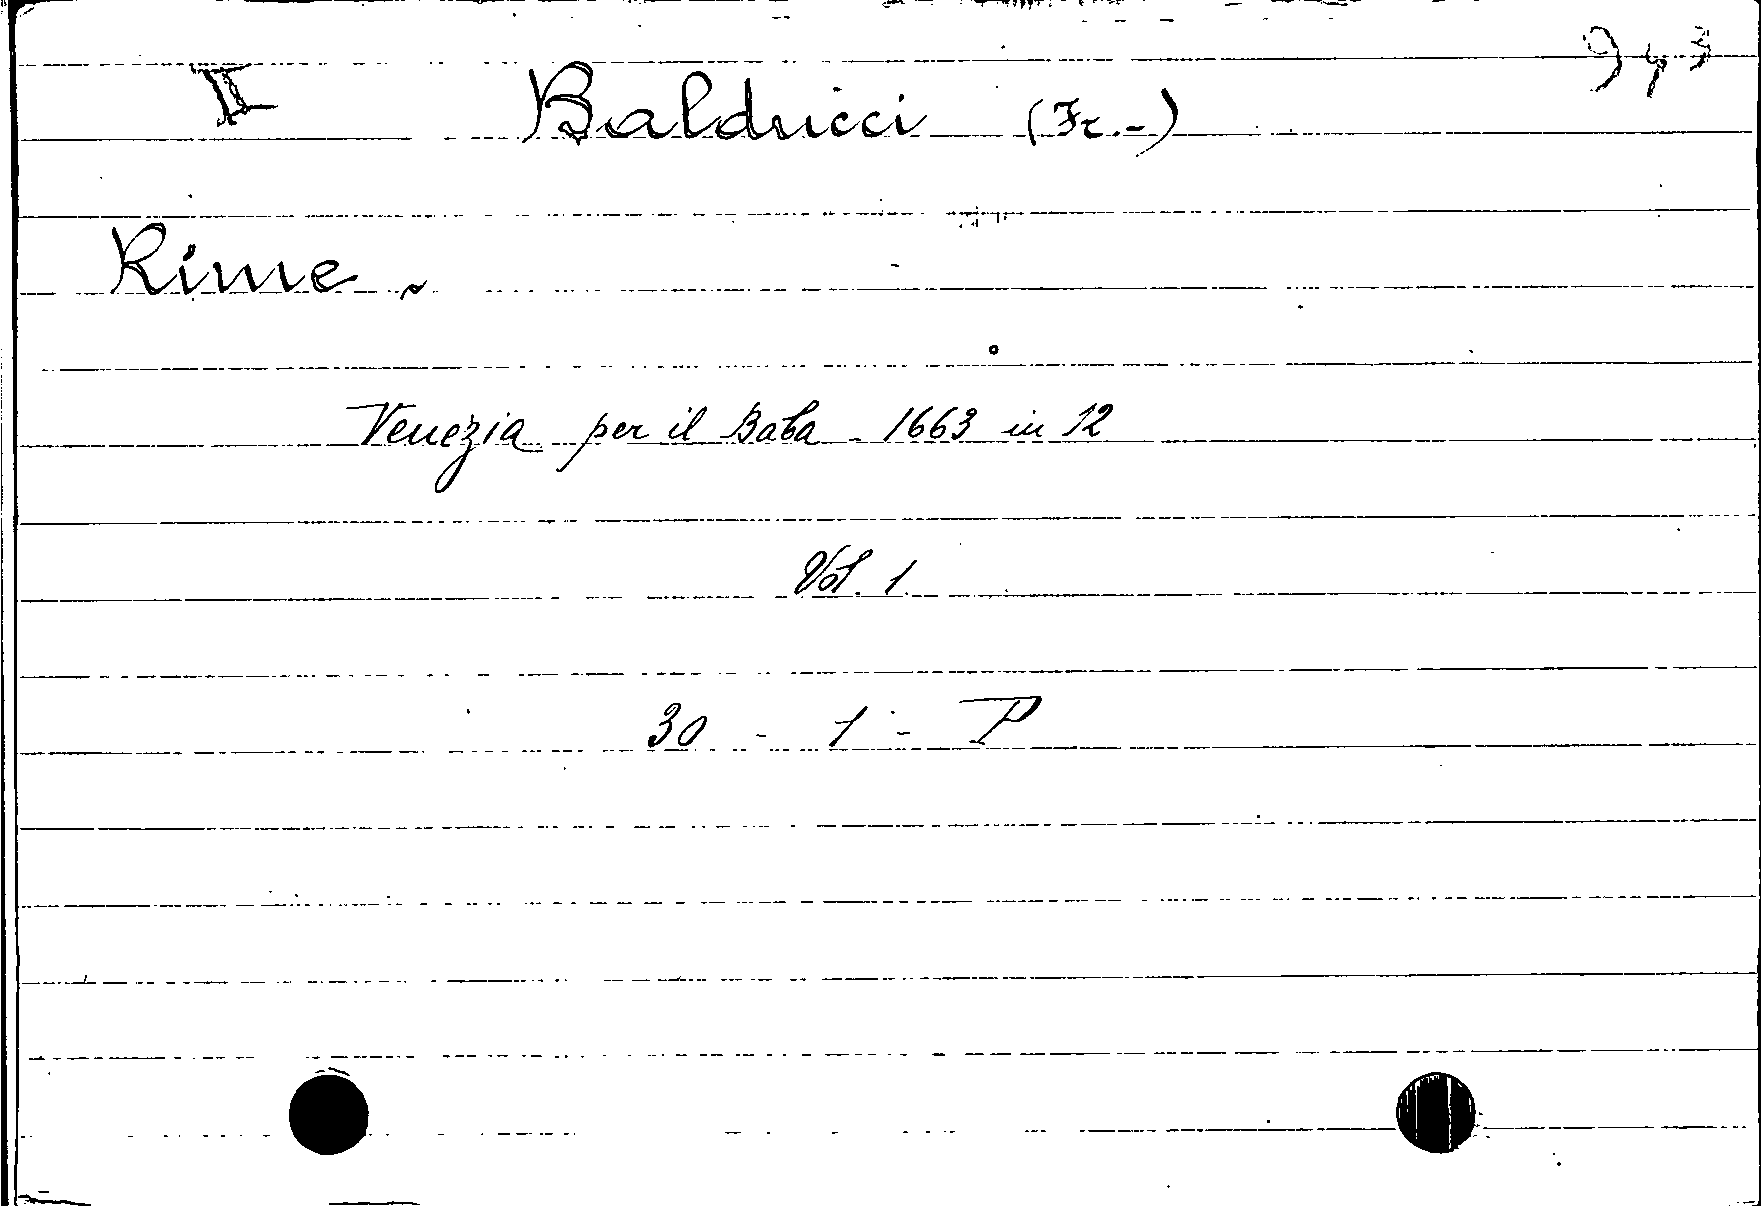 II Balducci (Fr.-) 943
Rime.
Venezia per il Baba - 1663 in 12
Vol. 1.
30 - 1 - P